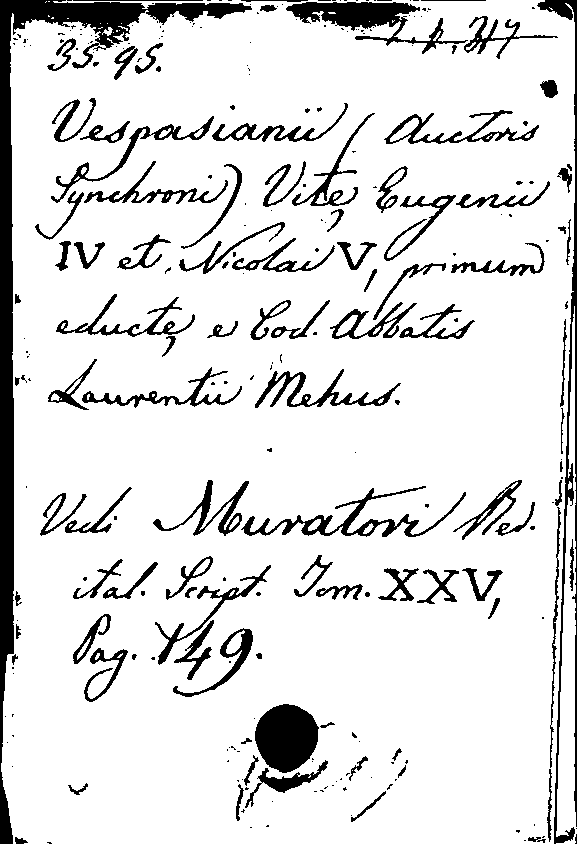 35. 95.
Vespasianii (Auctoris
Synchroni) Vitę Eugenii
IV et Nicolai V, primum
eductę e Cod. Abbatis
Laurentii Mehus.
Vedi Muratori Rer.
ital. Script. Tom. XXV,
Pag. 149.